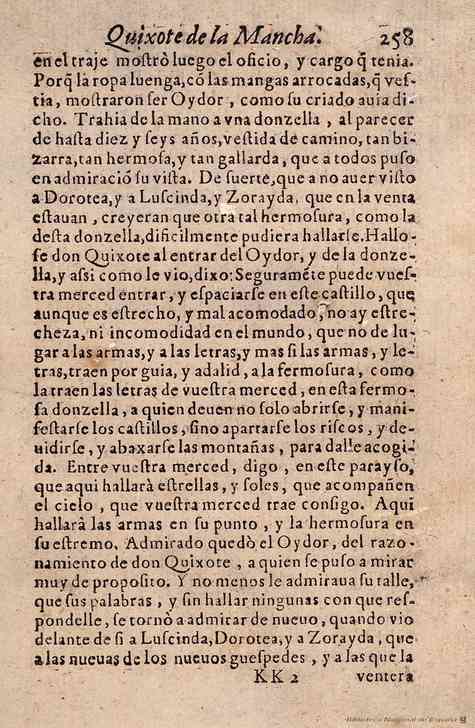 Quixote de la Mancha. 258
en el traje mostrò luego el oficio, y cargo q̃ tenia.
Porq̃ la ropa luenga, cõ las mangas arrocadas, q̃ ves-
tia, mostraron ser Oydor, como su criado auia di-
cho. Trahia de la mano a vna donzella, al parecer
de hasta diez y seys años, vestida de camino, tan bi-
zarra, tan hermosa, y tan gallarda, que a todos puso
en admiraciõ su vista. De suerte, que a no auer visto
a Dorotea, y a Luscinda, y Zorayda, que en la venta
estauan, creyeran que otra tal hermosura, como la
desta donzella, dificilmente pudiera hallarse. Hallo-
se don Quixote al entrar del Oydor, y de la donze-
lla, y assi como le vio, dixo: Seguramẽte puede vues-
tra merced entrar, y espaciarse en este castillo, que
aunque es estrecho, y mal acomodado, no ay estre-
cheza, ni incomodidad en el mundo, que no de lu-
gar a las armas, y a las letras, y mas si las armas, y le-
tras, traen por guia, y adalid, a la fermosura, como
la traen las letras de vuestra merced, en esta fermo-
sa donzella, a quien deuen no solo abrirse, y mani-
festarse los castillos, sino apartarse los riscos, y de-
uidirse, y abaxarse las montañas, para dalle acogi-
da. Entre vuestra merced, digo, en este parayso,
que aqui hallarà estrellas, y soles, que acompañen
el cielo, que vuestra merced trae consigo. Aqui
hallarà las armas en su punto, y la hermosura en
su estremo. Admirado quedò el Oydor, del razo-
namiento de don Quixote, a quien se puso a mirar
muy de proposito. Y no menos le admiraua su talle,
que sus palabras, y sin hallar ningunas con que res-
pondelle, se tornò a admirar de nueuo, quando vio
delante de si a Luscinda, Dorotea, y a Zorayda, que
a las nueuas de los nueuos guespedes, y a las que la
KK 2 ventera
Biblioteca Nacional de España